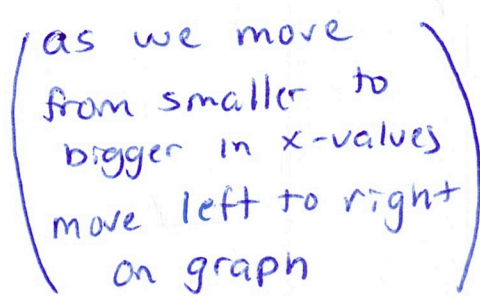 (as we move
from smaller to
bigger in x-values
move left to right
on graph)